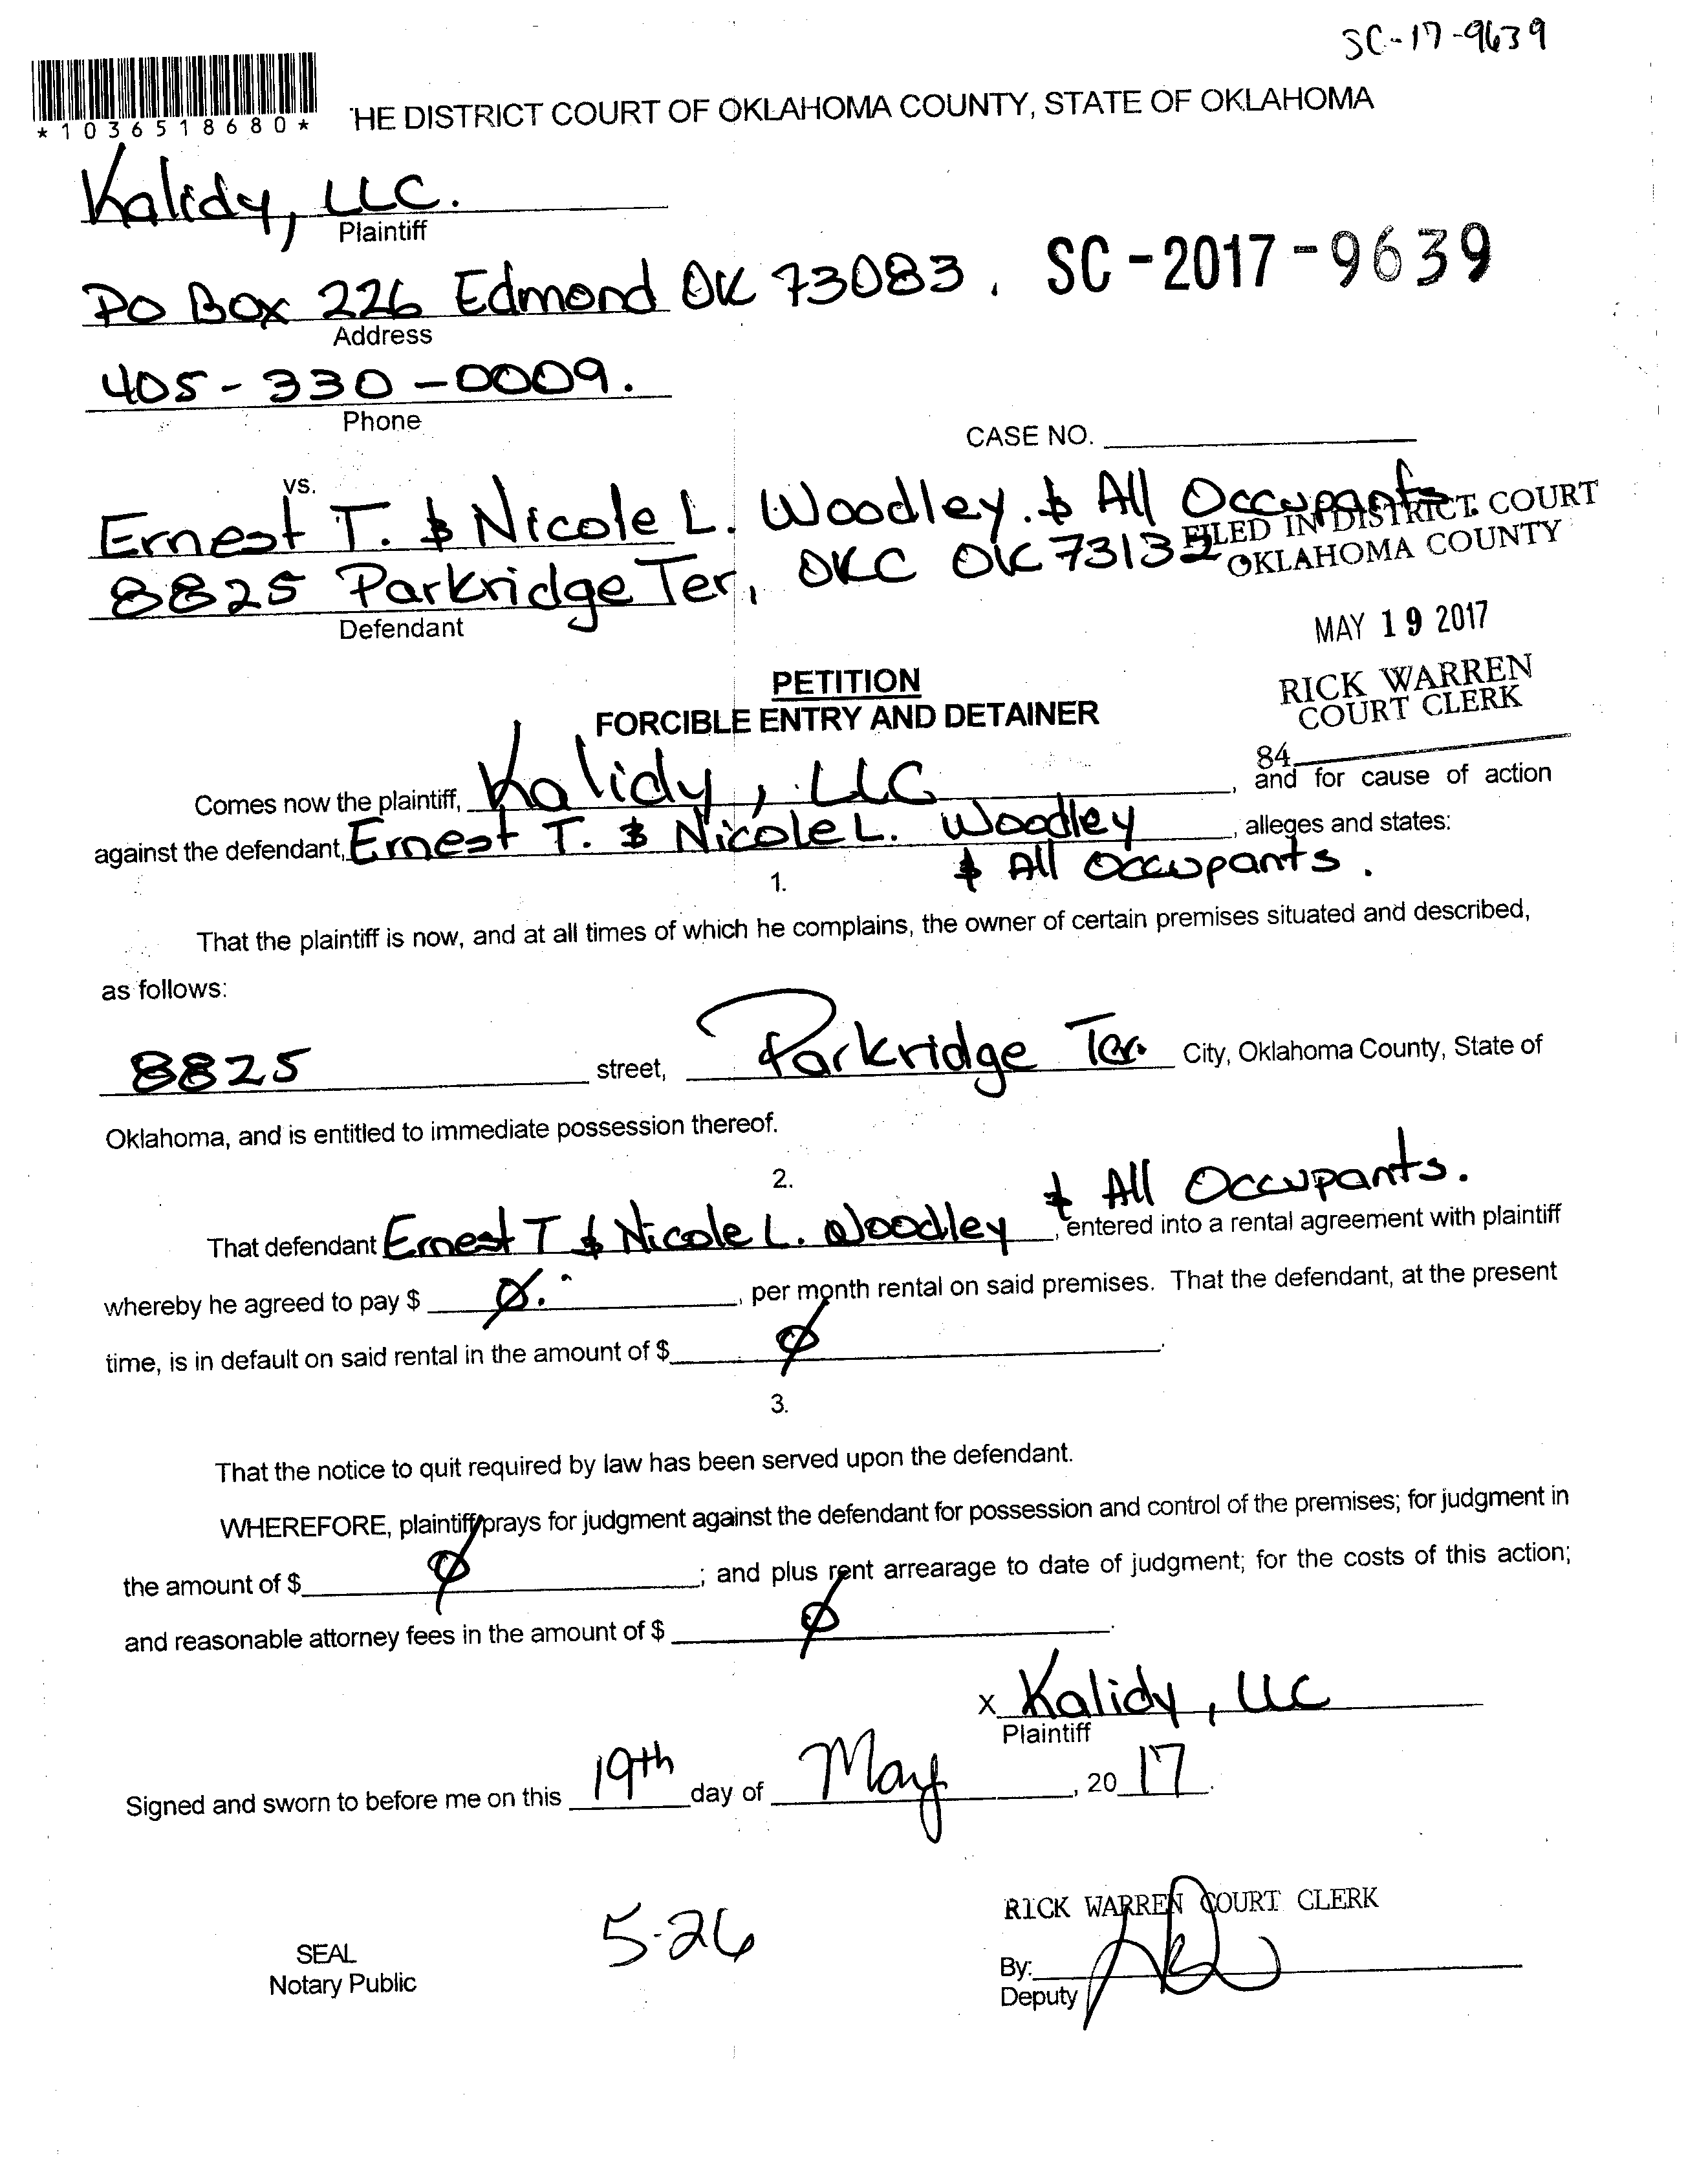 SC-17-9639
*1036518680*
'HE DISTRICT COURT OF OKLAHOMA COUNTY, STATE OF OKLAHOMA
Kalidy, LLC.
Plaintiff
PO Box 226 Edmond OK 73083.
SC-2017-9639
Address
405-330-0009.
Phone
CASE NO.
vs.
Ernest T. & Nicole L. Woodley. & All Occupants.
8825 Parkridge Ter, OKC OK 73132
Defendant
FILED IN DISTRICT COURT
OKLAHOMA COUNTY
MAY 19 2017
RICK WARREN
COURT CLERK
84
PETITION
FORCIBLE ENTRY AND DETAINER
Comes now the plaintiff, Kalidy, LLC, and for cause of action
against the defendant, Ernest T. & Nicole L. Woodley, alleges and states:
& All Occupants.
1.
That the plaintiff is now, and at all times of which he complains, the owner of certain premises situated and described,
as follows:
8825 street, Parkridge Ter. City, Oklahoma County, State of
Oklahoma, and is entitled to immediate possession thereof.
2.
& All Occupants.
That defendant Ernest T & Nicole L. Woodley, entered into a rental agreement with plaintiff
whereby he agreed to pay $ Ø. , per month rental on said premises. That the defendant, at the present
time, is in default on said rental in the amount of $ Ø.
3.
That the notice to quit required by law has been served upon the defendant.
WHEREFORE, plaintiff prays for judgment against the defendant for possession and control of the premises; for judgment in
the amount of $ Ø; and plus rent arrearage to date of judgment; for the costs of this action;
and reasonable attorney fees in the amount of $ Ø.
X Kalidy, LLC
Plaintiff
Signed and sworn to before me on this 19th day of May, 2017.
5-26
RICK WARREN COURT CLERK
SEAL
Notary Public
By:
Deputy